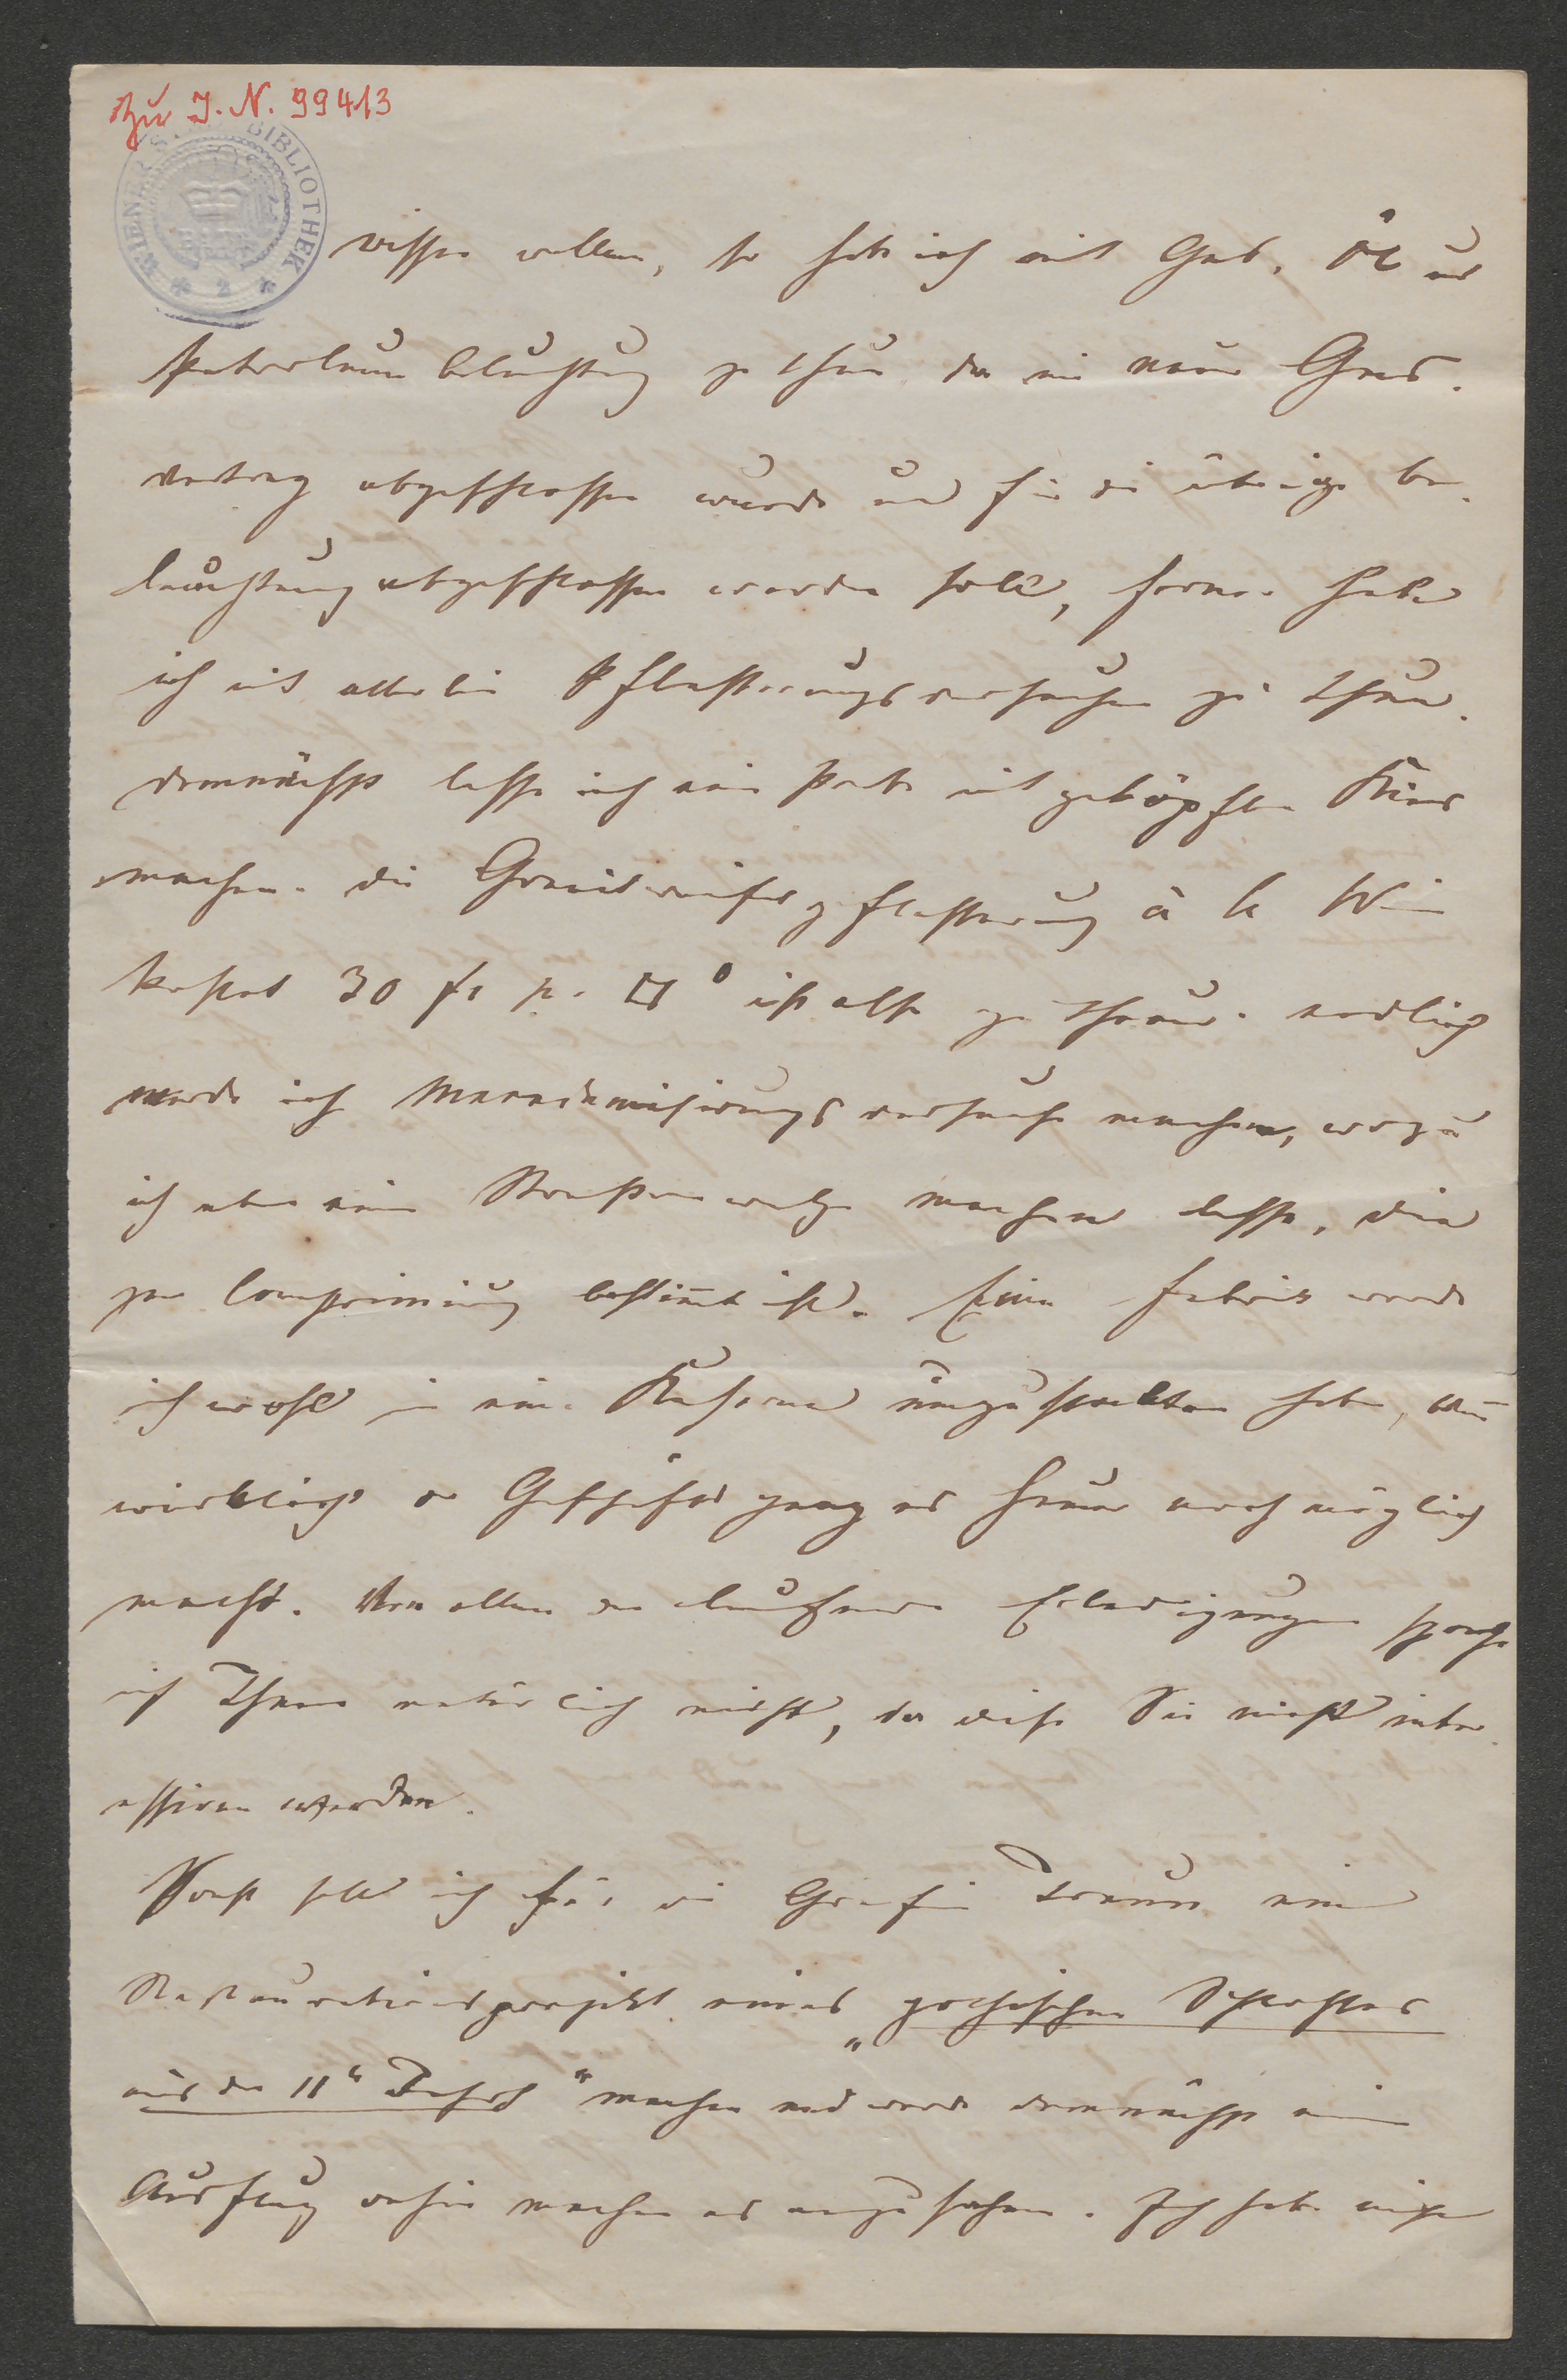 zu I. N. 99413
WIENER STADTBIBLIOTHEK
* 2 *
wissen wollen, so habe ich mit Gas, Öl und
Petroleumbeleuchtung zu thun da ein neuer Gas-
vertrag abgeschlossen wurde und für die übrige Be-
leuchtung abgeschlossen werden soll, ferner habe
ich mit allerlei Pflasterungsversuchen zu thun.
demnächst lasse ich eine Probe mit geköpften Kies
machen. die Granitwürfelpflasterung à la Wien
kostet 30 fl pr □° ist also zu theuer. endlich
werde ich Macadamisirungsversuche machen, wozu
ich eben eine Straßenwalze machen lasse, die
zur Comprimirung bestimmt ist. Eine Fabrik werde
ich wohl in eine Kaserne umzugestalten haben, wenn
wirklich der Geschäftsgang es heuer noch möglich
macht. Von allen den laufenden Erledigungen spreche
ich Ihnen natürlich nicht, da diese Sie nicht inter-
essiren werden.
Sonst soll ich für die Gräfin Traun ein
Restaurationsprojekt eines „gothischen Schlosses
aus dem 11ten Jahrh" machen und werde demnächst einen
Ausflug dahin machen es anzusehen. Ich habe einige